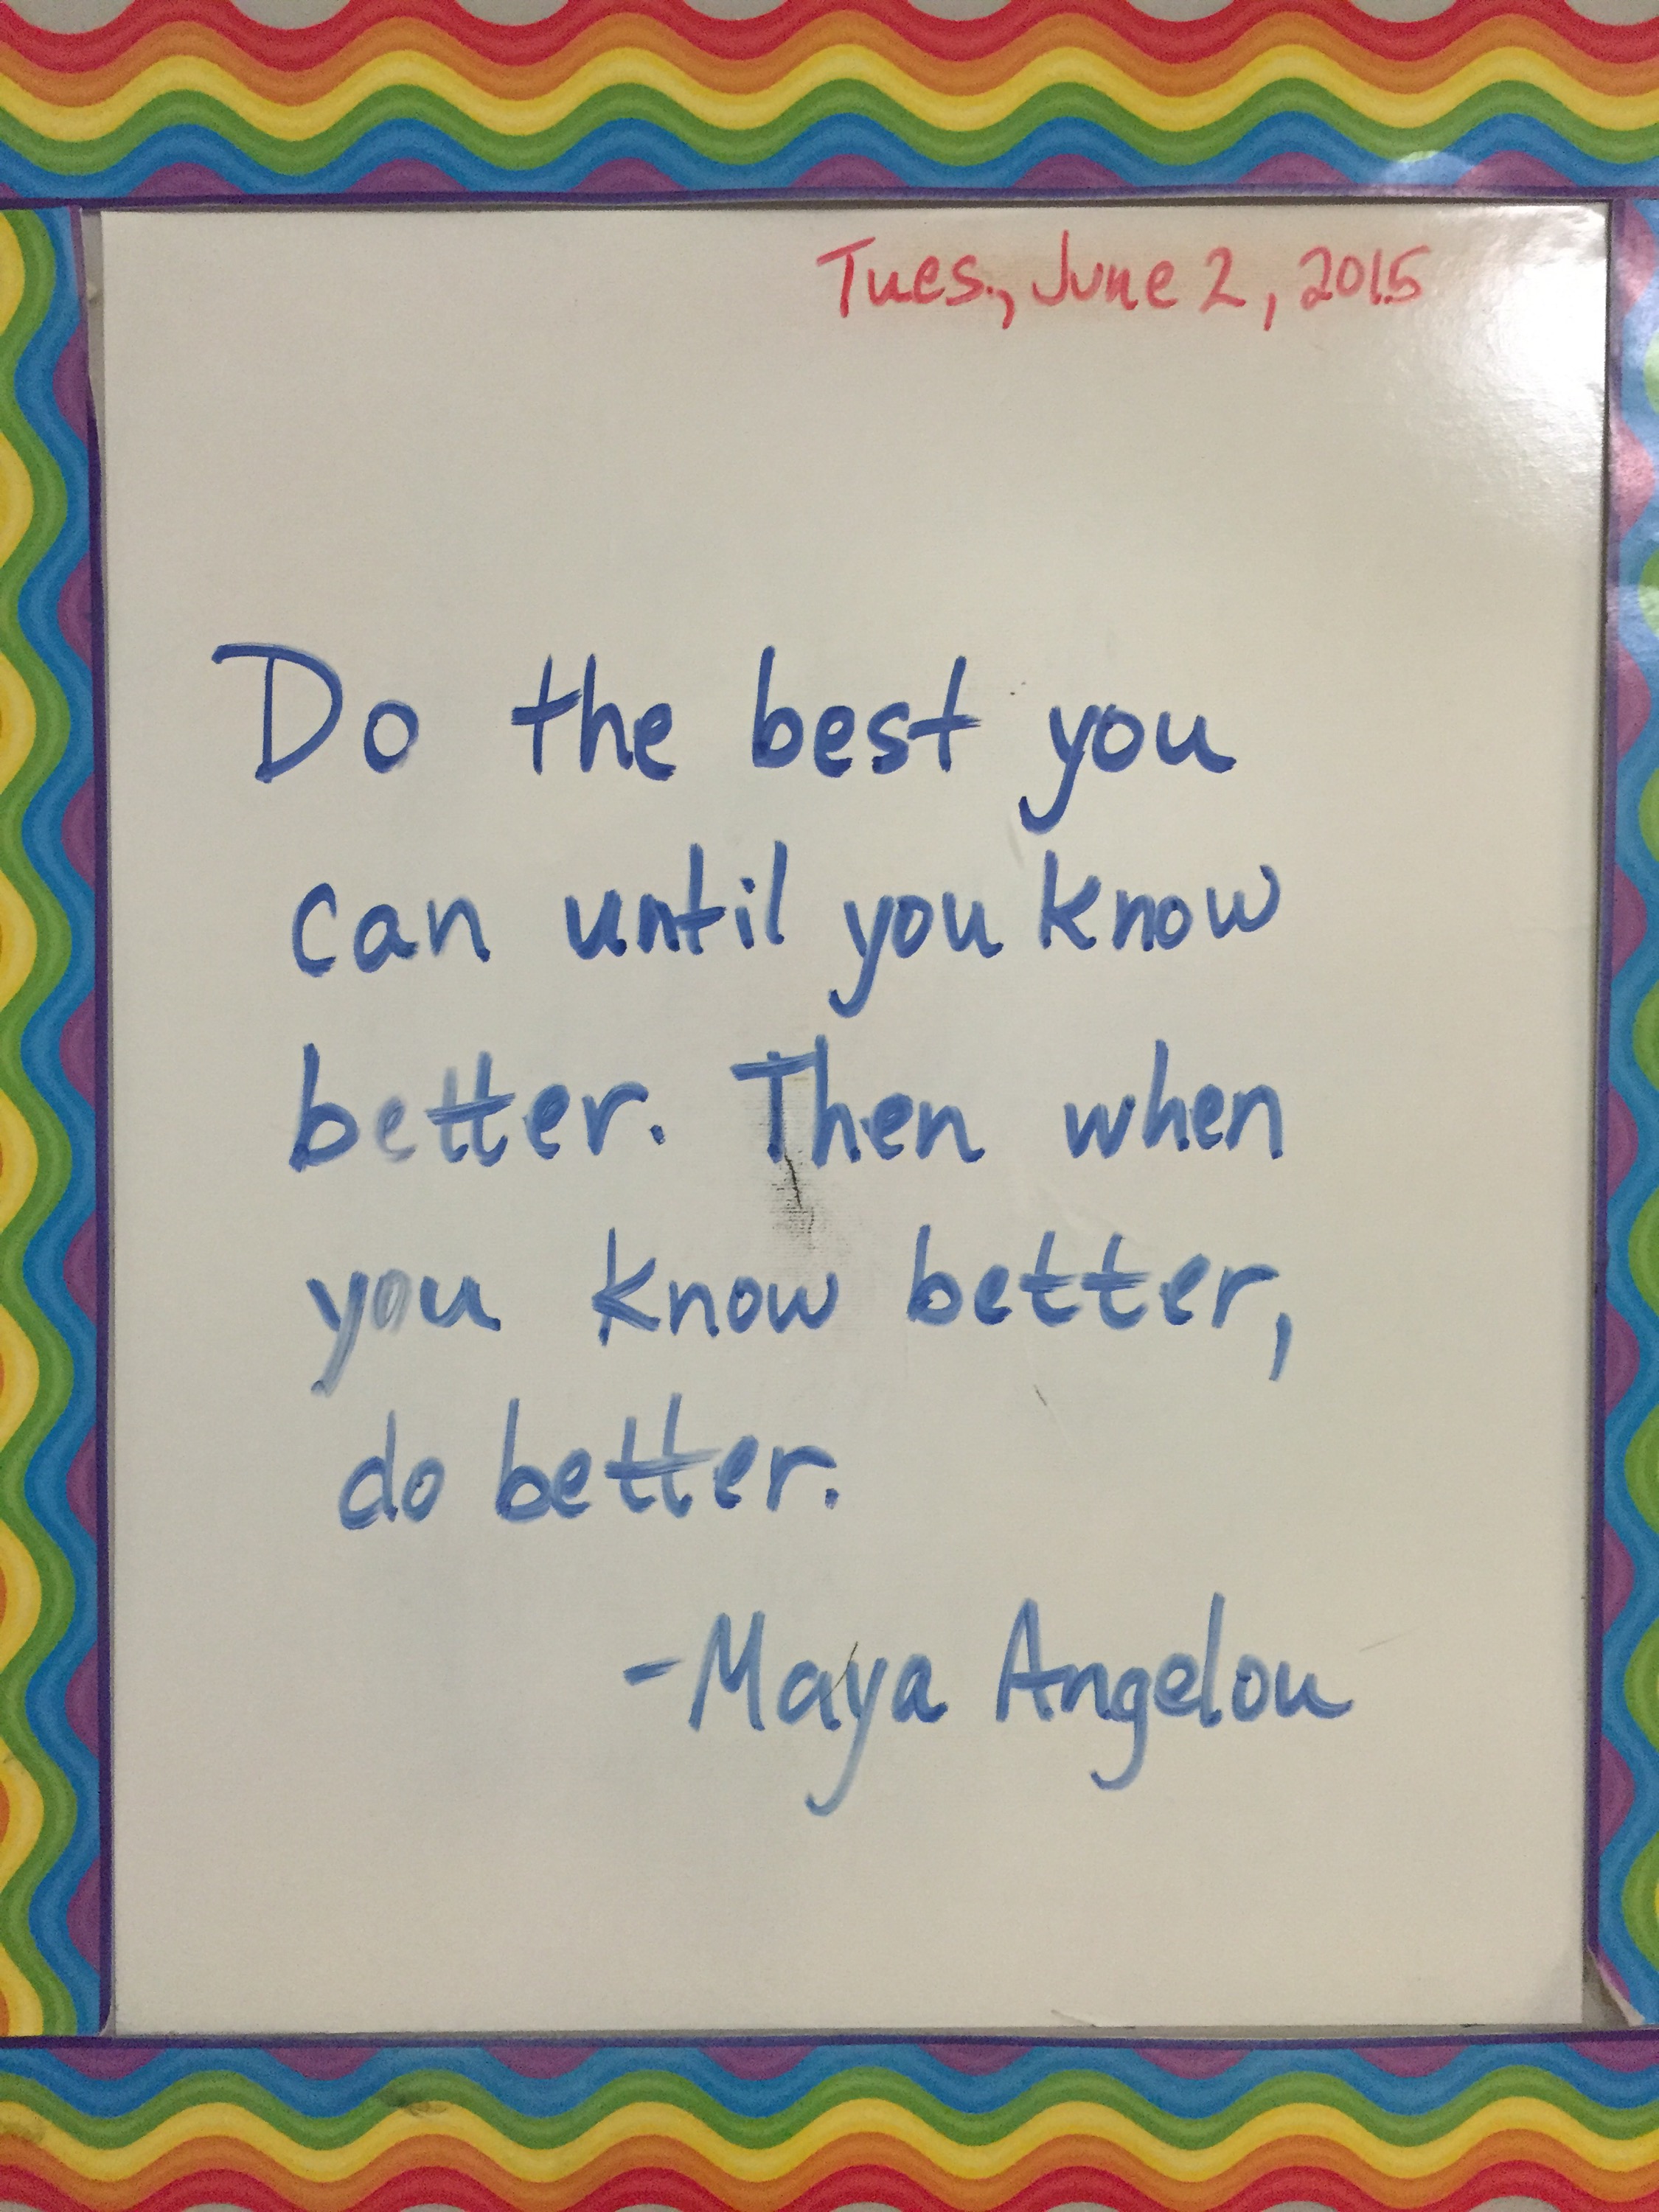 Tues., June 2, 2015
Do the best you
can until you know
better. Then when
you know better,
do better.
-Maya Angelou